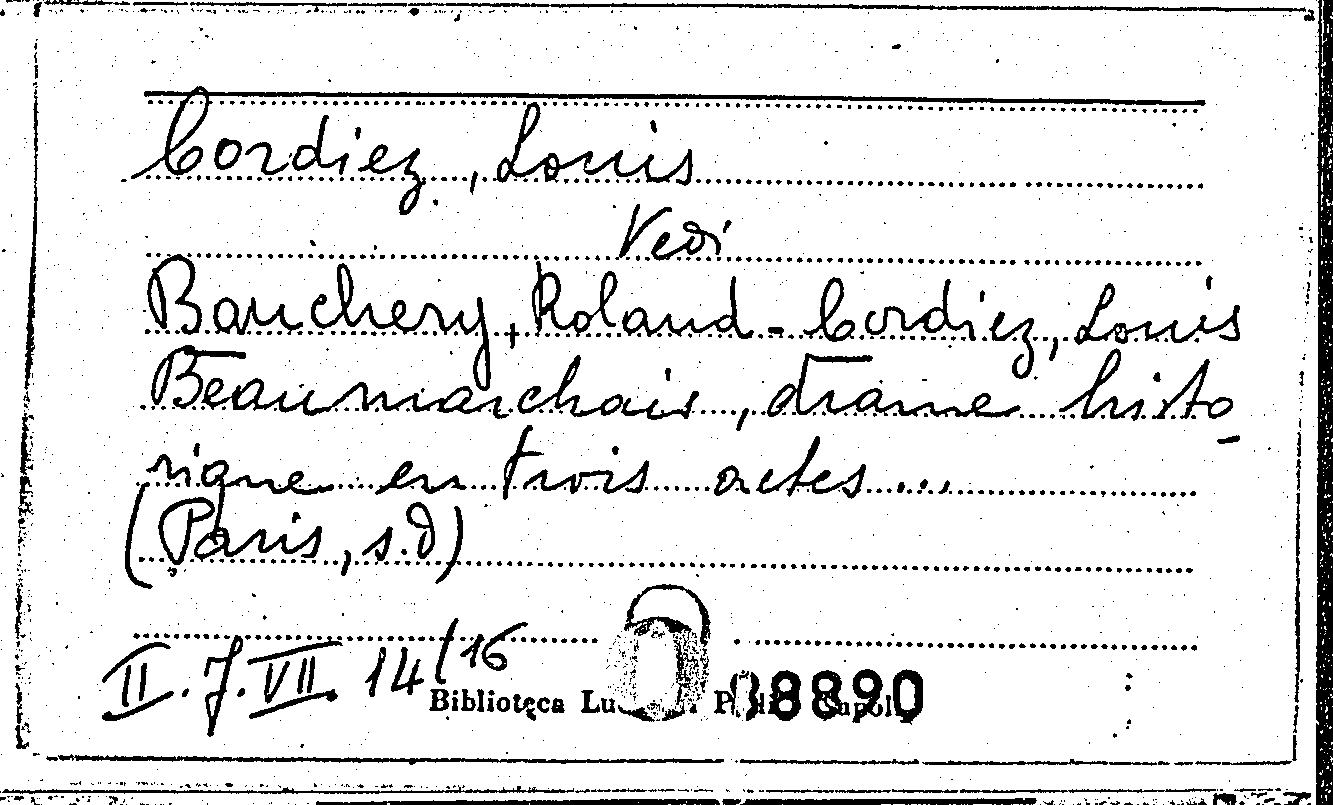 Cordiez, Louis
Vedi
Bauchery, Roland - Cordiez, Louis
Beaumarchais, drame histo-
rique en trois actes...
(Paris, s.d)
II. J. VII. 14 (16
Biblioteca Lu
88890